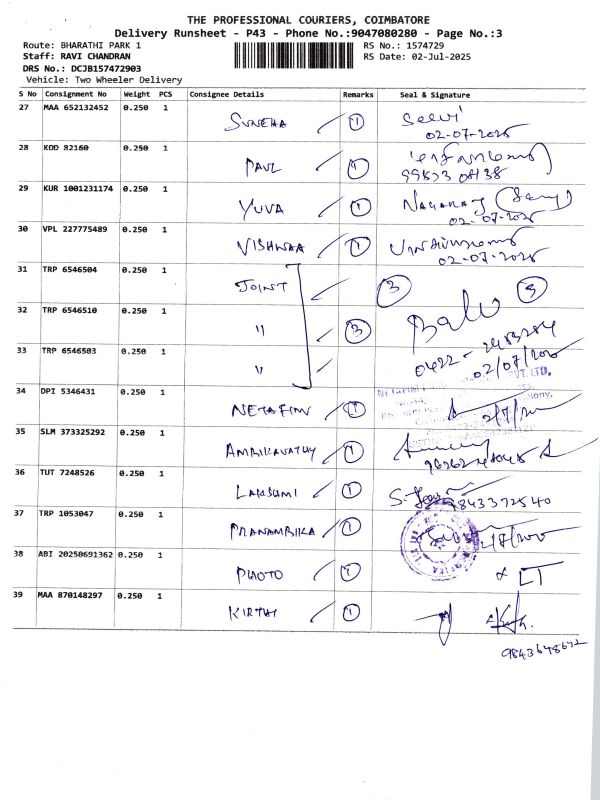 THE PROFESSIONAL COURIERS, COIMBATORE
Delivery Runsheet - P43 - Phone No.:9047080280 - Page No.:3
Route: BHARATHI PARK 1
RS No.: 1574729
Staff: RAVI CHANDRAN
RS Date: 02-Jul-2025
DRS No.: DCJB157472903
Vehicle: Two Wheeler Delivery
S No Consignment No Weight PCS Consignee Details Remarks Seal & Signature
27 MAA 652132452 0.250 1 SUNEHA 1 Selvi
02-07-2025
28 KDD 82160 0.250 1 PAUL 1
99523 08138
29 KUR 1001231174 0.250 1 YUVA 1 NAGARAJ
02-07-2025
30 VPL 227775489 0.250 1 VISHWAA 1
02-07-2025
31 TRP 6546504 0.250 1 JOINT 3
32 TRP 6546510 0.250 1 " 3 Balu
33 TRP 6546503 0.250 1 " 0422-2483284
02/07/2025
PVT. LTD.
34 DPI 5346431 0.250 1 1
35 SLM 373325292 0.250 1 1
36 TUT 7248526 0.250 1 LAKSUMI 1 9843372540
37 TRP 1053047 0.250 1 PRANAMBIKA 1
38 ABI 20250691362 0.250 1 PHOTO 1
39 MAA 870148297 0.250 1 KIRTHI 1
9843648672